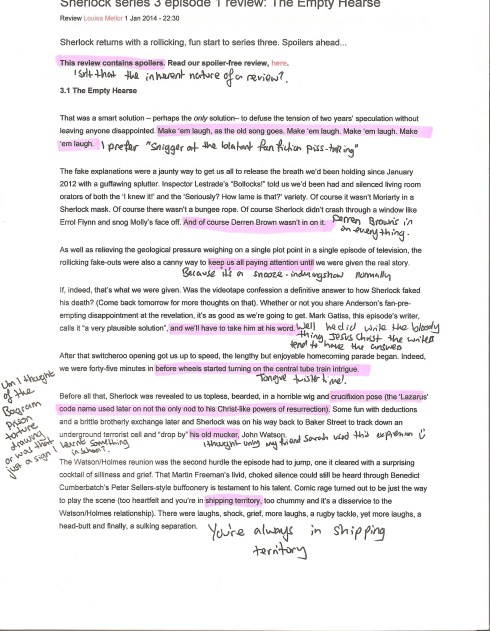 Sherlock series 3 episode 1 review: The Empty Hearse
Review Louisa Mellor 1 Jan 2014 - 22:30
Sherlock returns with a rollicking, fun start to series three. Spoilers ahead...
This review contains spoilers. Read our spoiler-free review, here.
Isn't that the inherent nature of a review?
3.1 The Empty Hearse
That was a smart solution – perhaps the only solution– to defuse the tension of two years' speculation without
leaving anyone disappointed. Make 'em laugh, as the old song goes. Make 'em laugh. Make 'em laugh. Make
'em laugh. I prefer "Snigger at the blatant fan fiction piss-taking"
The fake explanations were a jaunty way to get us all to release the breath we'd been holding since January
2012 with a guffawing splutter. Inspector Lestrade's "Bollocks!" told us we'd been had and silenced living room
orators of both the 'I knew it!' and the 'Seriously? How lame is that?' variety. Of course it wasn't Moriarty in a
Sherlock mask. Of course there wasn't a bungee rope. Of course Sherlock didn't crash through a window like
Errol Flynn and snog Molly's face off. And of course Derren Brown wasn't in on it. Derren Brown's in
on everything.
As well as relieving the geological pressure weighing on a single plot point in a single episode of television, the
rollicking fake-outs were also a canny way to keep us all paying attention until we were given the real story.
Because it's a snooze-inducing show normally
If, indeed, that's what we were given. Was the videotape confession a definitive answer to how Sherlock faked
his death? (Come back tomorrow for more thoughts on that). Whether or not you share Anderson's fan-pre-
empting disappointment at the revelation, it's as good as we're going to get. Mark Gatiss, this episode's writer,
calls it "a very plausible solution", and we'll have to take him at his word. Well he did write the bloody
thing, Jesus Christ the writers
tend to have the answers
After that switcheroo opening got us up to speed, the lengthy but enjoyable homecoming parade began. Indeed,
we were forty-five minutes in before wheels started turning on the central tube train intrigue.
Tongue twister time!
Before all that, Sherlock was revealed to us topless, bearded, in a horrible wig and crucifixion pose (the 'Lazarus'
code name used later on not the only nod to his Christ-like powers of resurrection). Some fun with deductions
and a brittle brotherly exchange later and Sherlock was on his way back to Baker Street to track down an
underground terrorist cell and "drop by" his old mucker, John Watson.
I thought only my friend Sarah used this expression
Um I thought
of the
Bagram
Prison
torture
drawing
or was that
just a sign I
learnt something
in school?
The Watson/Holmes reunion was the second hurdle the episode had to jump, one it cleared with a surprising
cocktail of silliness and grief. That Martin Freeman's livid, choked silence could still be heard through Benedict
Cumberbatch's Peter Sellers-style buffoonery is testament to his talent. Comic rage turned out to be just the way
to play the scene (too heartfelt and you're in shipping territory, too chummy and it's a disservice to the
Watson/Holmes relationship). There were laughs, shock, grief, more laughs, a rugby tackle, yet more laughs, a
head-butt and finally, a sulking separation.
You're always in shipping
territory